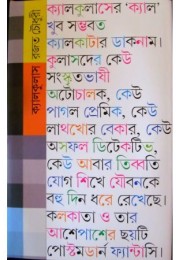 ক্যালকুলাসের 'ক্যাল'
খুব সম্ভবত
ক্যালকাটার ডাকনাম।
কুলাসদের কেউ
সংস্কৃতভাষী
অটোচালক, কেউ
পাগল প্রেমিক, কেউ
লাথখোর বেকার, কেউ
অসফল ডিটেকটিভ,
কেউ আবার তিব্বতি
যোগ শিখে যৌবনকে
বহু দিন ধরে রেখেছে।
কলকাতা ও তার
আশেপাশের ছয়টি
পোস্টমডার্ন ফ্যান্টাসি।
ক্যালকুলাস